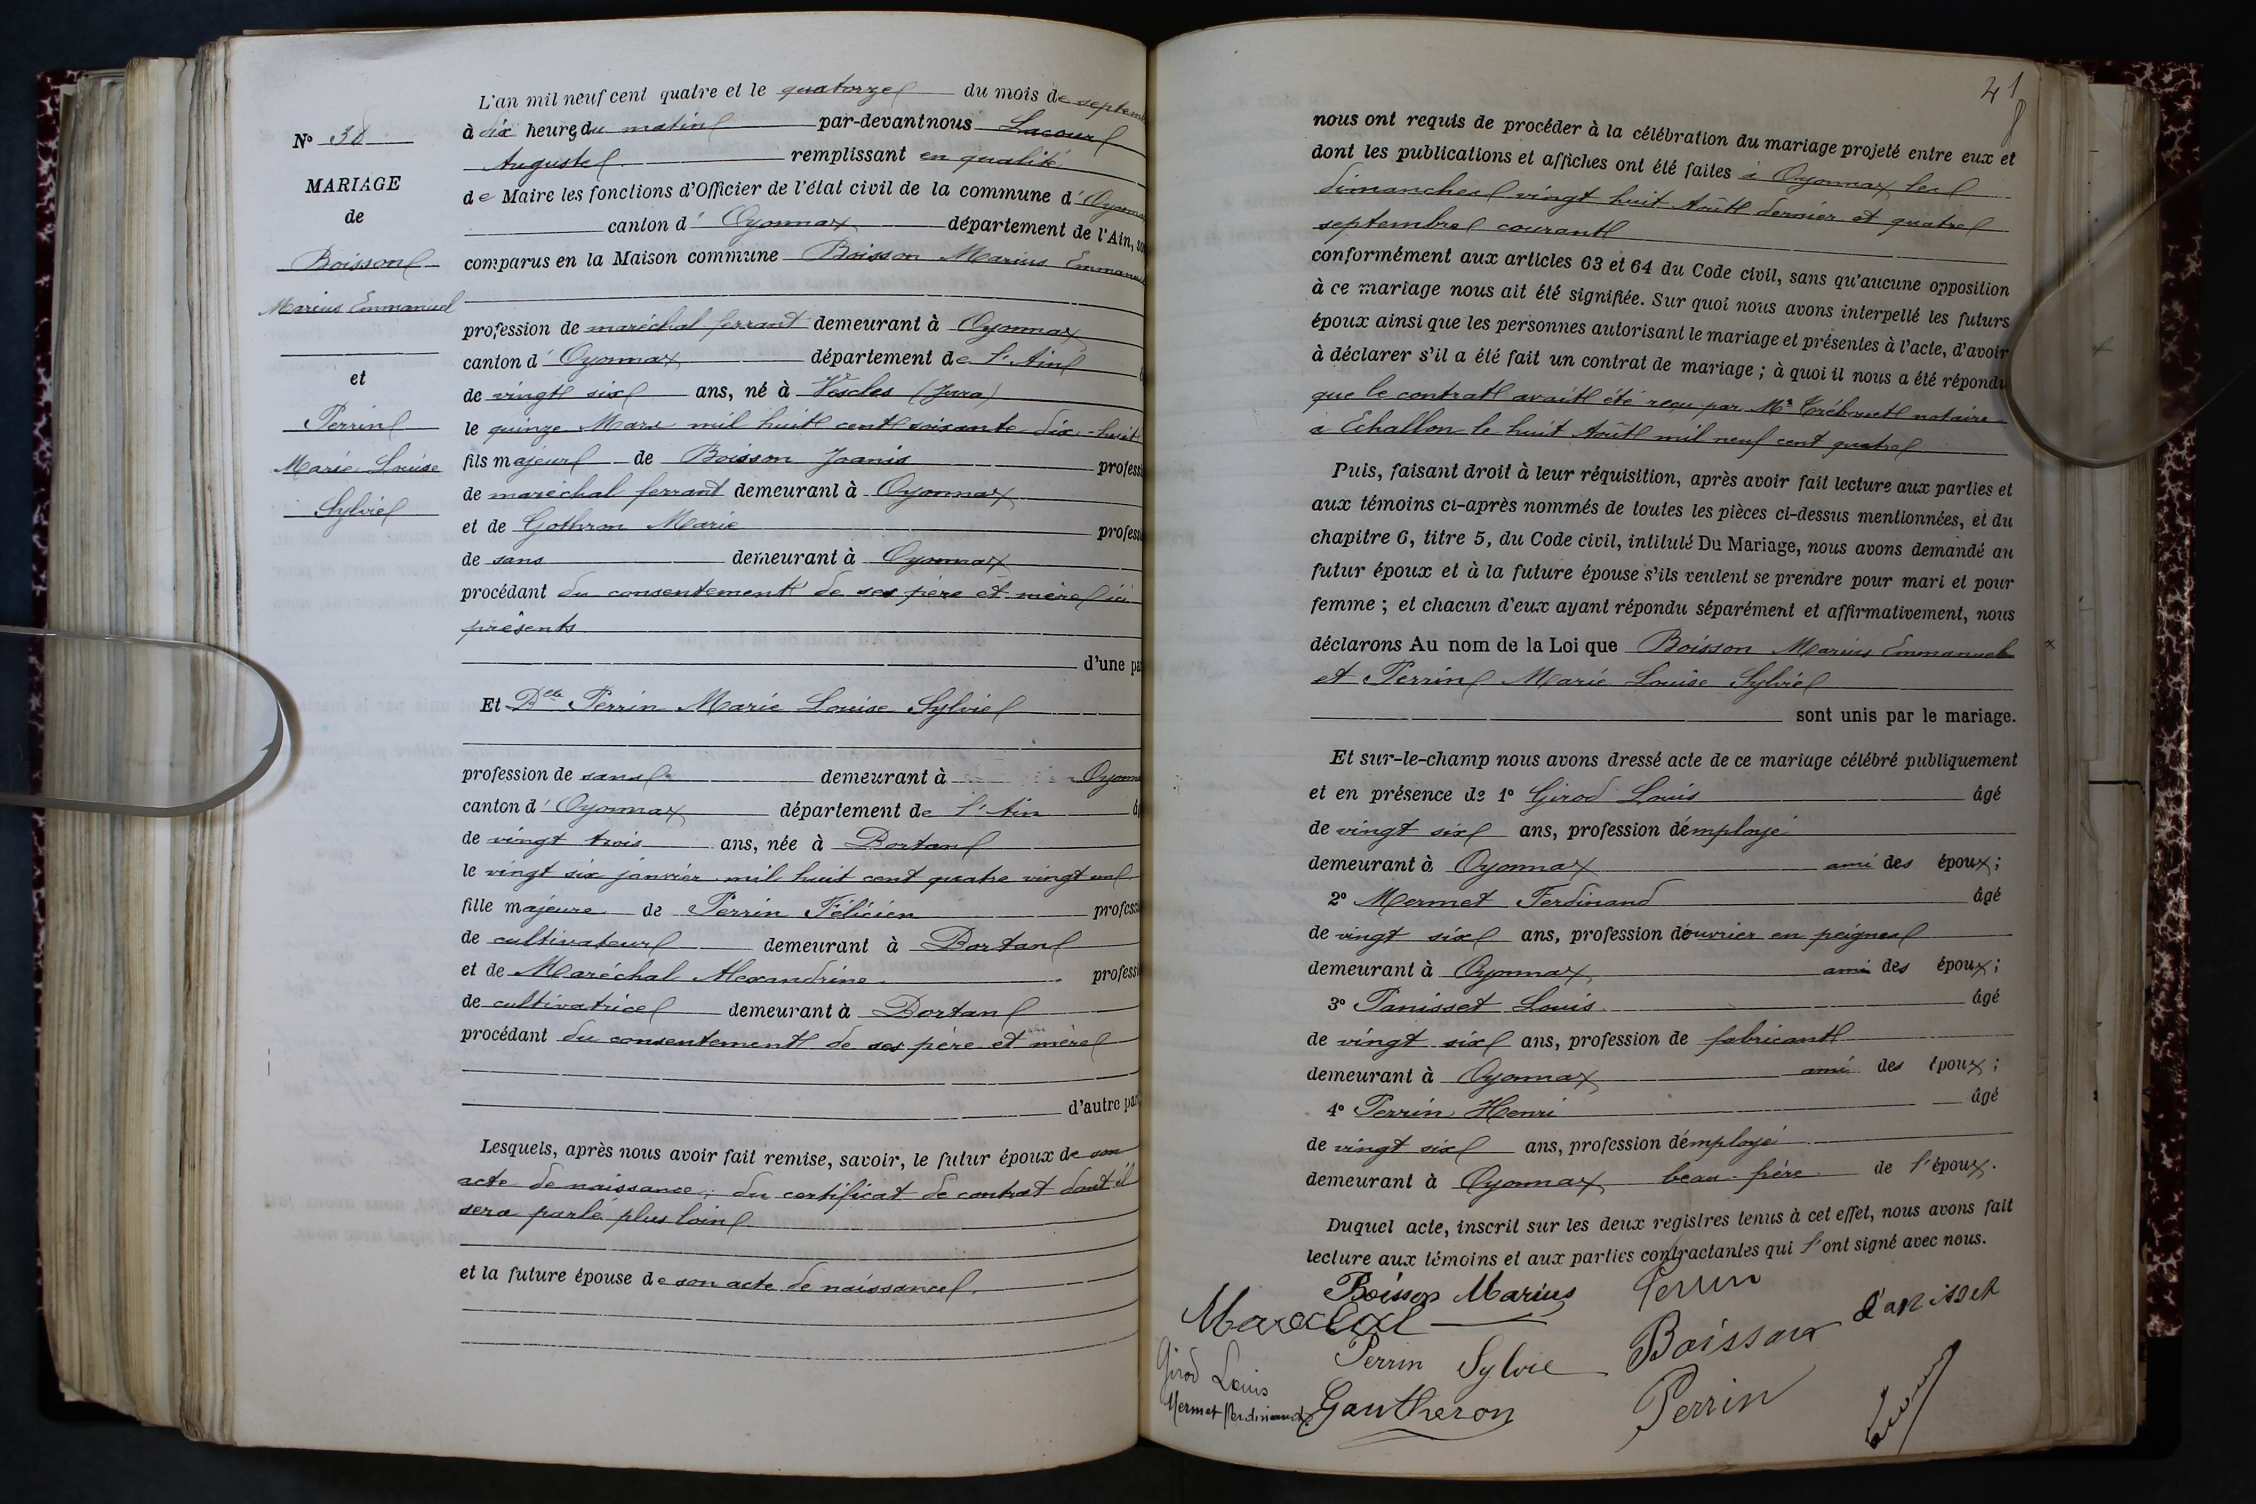 N° 38
MARIAGE
de
Boisson
Marius Emmanuel
et
Perrin
Marie Louise
Sylvie
L'an mil neuf cent quatre et le quatorze du mois de septem
à six heures du matin par-devant nous Lacour
Auguste remplissant en qualité
de Maire les fonctions d'Officier de l'état civil de la commune d'Oyonna
canton d'Oyonnax département de l'Ain, so
comparus en la Maison commune Boisson Marius Emmanuel
profession de maréchal ferrant demeurant à Oyonnax
canton d'Oyonnax département de l'Ain
de vingt six ans, né à Vescles (Jura)
le quinze Mars mil huit cent soixante dix-huit
fils majeur de Boisson Joanis professi
de maréchal ferrant demeurant à Oyonnax
et de Gothron Marie professi
de sans demeurant à Oyonnax
procédant du consentement de ses père et mère ici
présents
d'une pa
Et Delle Perrin Marie Louise Sylvie
profession de sans demeurant à Oyonna
canton d'Oyonnax département de l'Ain â
de vingt trois ans, née à Dortan
le vingt six janvier mil huit cent quatre vingt un
fille majeure de Perrin Félicien professi
de cultivateur demeurant à Dortan
et de Maréchal Alexandrine professi
de cultivatrice demeurant à Dortan
procédant du consentement de ses père et mère
d'autre part
Lesquels, après nous avoir fait remise, savoir, le futur époux de son
acte de naissance, du certificat de contrat dont il
sera parlé plus loin
et la future épouse de son acte de naissance.
41
nous ont requis de procéder à la célébration du mariage projeté entre eux et
dont les publications et affiches ont été faites à Oyonnax les
dimanches vingt huit Août dernier et quatre
septembre courant
conformément aux articles 63 et 64 du Code civil, sans qu'aucune opposition
à ce mariage nous ait été signifiée. Sur quoi nous avons interpellé les futurs
époux ainsi que les personnes autorisant le mariage et présentes à l'acte, d'avoir
à déclarer s'il a été fait un contrat de mariage ; à quoi il nous a été répondu
que le contrat avait été reçu par Me Trébuet notaire
à Echallon le huit Août mil neuf cent quatre
Puis, faisant droit à leur réquisition, après avoir fait lecture aux parties et
aux témoins ci-après nommés de toutes les pièces ci-dessus mentionnées, et du
chapitre 6, titre 5, du Code civil, intitulé Du Mariage, nous avons demandé au
futur époux et à la future épouse s'ils veulent se prendre pour mari et pour
femme ; et chacun d'eux ayant répondu séparément et affirmativement, nous
déclarons Au nom de la Loi que Boisson Marius Emmanuel
et Perrin Marie Louise Sylvie
sont unis par le mariage.
Et sur-le-champ nous avons dressé acte de ce mariage célébré publiquement
et en présence de 1° Girod Louis âgé
de vingt six ans, profession d'employé
demeurant à Oyonnax ami des époux ;
2° Mermet Ferdinand âgé
de vingt six ans, profession d'ouvrier en peignes
demeurant à Oyonnax ami des époux ;
3° Tanisset Louis âgé
de vingt six ans, profession de fabricant
demeurant à Oyonnax ami des époux ;
4° Perrin Henri âgé
de vingt six ans, profession d'employé
demeurant à Oyonnax beau-frère de l'époux.
Duquel acte, inscrit sur les deux registres tenus à cet effet, nous avons fait
lecture aux témoins et aux parties contractantes qui l'ont signé avec nous.
Boisson Marius Perrin
Marechal Tanisset
Perrin Sylvie Boisson
Girod Louis
Mermet Ferdinand Gautheron Perrin